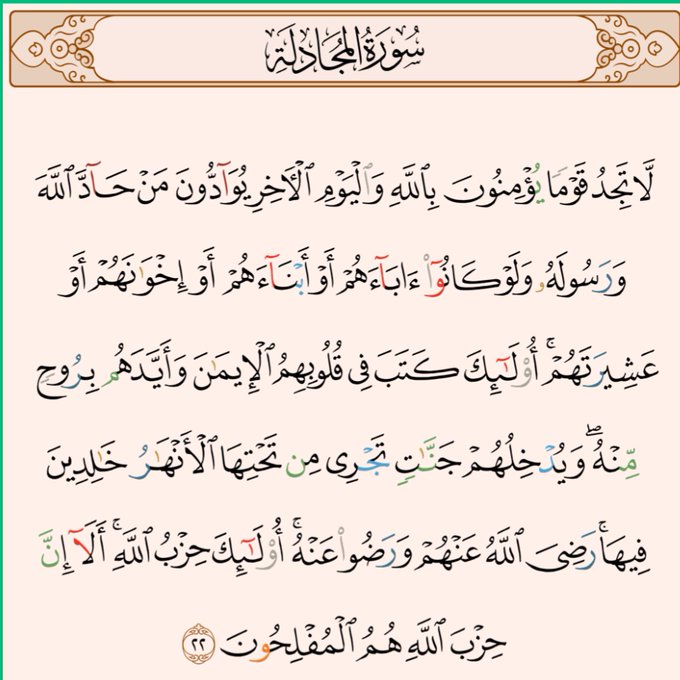 سُورَةُ المُجَادلَةِ
لَّا تَجِدُ قَوْمًا يُؤْمِنُونَ بِٱللَّهِ وَٱلْيَوْمِ ٱلْأَخِرِ يُوَآدُّونَ مَنْ حَآدَّ ٱللَّهَ
وَرَسُولَهُۥ وَلَوْ كَانُوٓا۟ ءَابَآءَهُمْ أَوْ أَبْنَآءَهُمْ أَوْ إِخْوَٰنَهُمْ أَوْ
عَشِيرَتَهُمْ ۚ أُو۟لَـٰٓئِكَ كَتَبَ فِى قُلُوبِهِمُ ٱلْإِيمَـٰنَ وَأَيَّدَهُم بِرُوحٍ
مِّنْهُ ۖ وَيُدْخِلُهُمْ جَنَّـٰتٍ تَجْرِى مِن تَحْتِهَا ٱلْأَنْهَـٰرُ خَـٰلِدِينَ
فِيهَا ۚ رَضِىَ ٱللَّهُ عَنْهُمْ وَرَضُوا۟ عَنْهُ ۚ أُو۟لَـٰٓئِكَ حِزْبُ ٱللَّهِ ۚ أَلَآ إِنَّ
حِزْبَ ٱللَّهِ هُمُ ٱلْمُفْلِحُونَ ٢٢